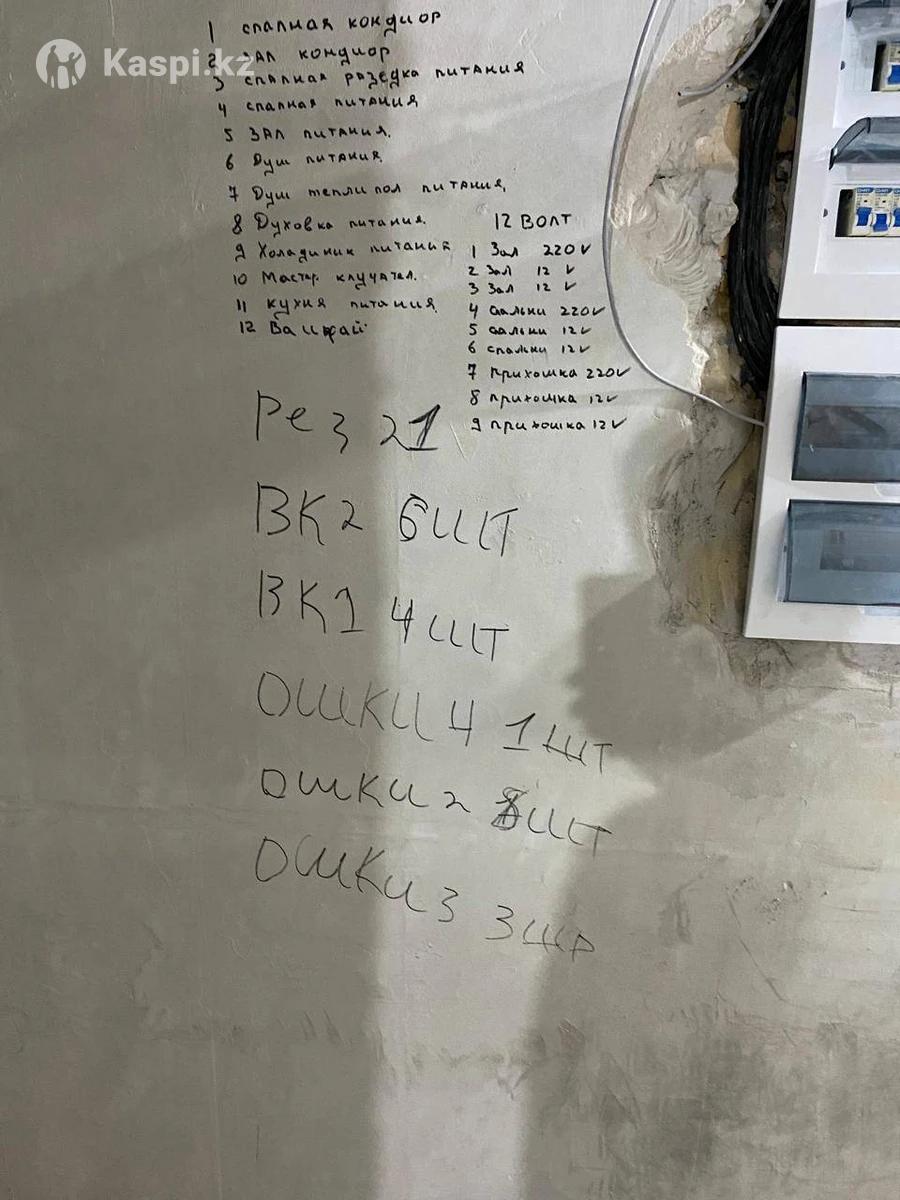 Kaspi.kz
1 спапная кондиор
2 зал кондиор
3 спапная розедка питания
4 спапная питания
5 ЗАЛ питания.
6 Душ питания,
7 Душ тепли пол питания,
8 Духовка питания.
9 Холадиник питаний
10 Мастер. клучател.
11 кухня питания,
12 Ва
12 ВОЛТ
1 Зал 220V
2 Зал 12 V
3 Зал 12 V
4 спальни 220V
5 спальни 12V
6 спальни 12V
7 прихошка 220V
8 прихошка 12V
9 прихошка 12V
Рез 21
ВК2 6шт
ВК1 4шт
ОШКИ 4 1шт
ОШКИ 2 шт
ОШКИ 3 3шр